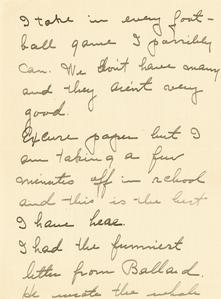 I take in every foot-
ball game I possibly
can. We don't have many
and they aren't very
good.
Excuse paper but I
am taking a few
minutes off in school
and this is the best
I have here.
I had the funniest
letter from Ballard.
He wrote the whole